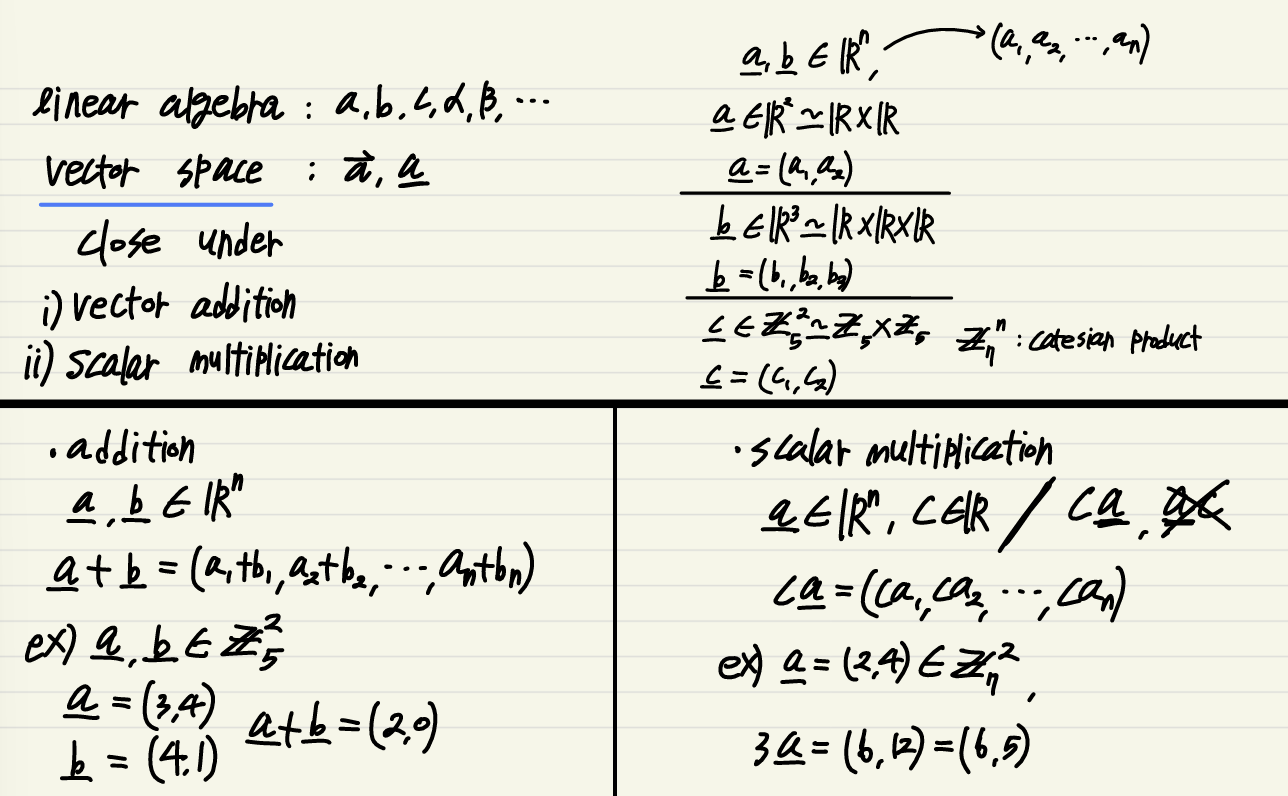 linear algebra : a, b, c, α, β, ⋯
vector space : a⃗, a̲
close under
i) vector addition
ii) scalar multiplication
a̲, b̲ ∈ ℝⁿ, → (a₁, a₂, ⋯, aₙ)
a̲ ∈ ℝ² ≃ ℝ×ℝ
a̲ = (a₁, a₂)
b̲ ∈ ℝ³ ≃ ℝ×ℝ×ℝ
b̲ = (b₁, b₂, b₃)
c̲ ∈ ℤ₅² ≃ ℤ₅×ℤ₅
ℤ₇ⁿ : catesian product
c̲ = (c₁, c₂)
· addition
a̲, b̲ ∈ ℝⁿ
a̲ + b̲ = (a₁+b₁, a₂+b₂, ⋯, aₙ+bₙ)
ex) a̲, b̲ ∈ ℤ₅²
a̲ = (3,4)
b̲ = (4,1)
a̲+b̲ = (2,0)
· scalar multiplication
a̲ ∈ ℝⁿ, c ∈ ℝ / ca̲, a̲c
ca̲ = (ca₁, ca₂, ⋯, caₙ)
ex) a̲ = (2,4) ∈ ℤ₇²,
3a̲ = (6,12) = (6,5)